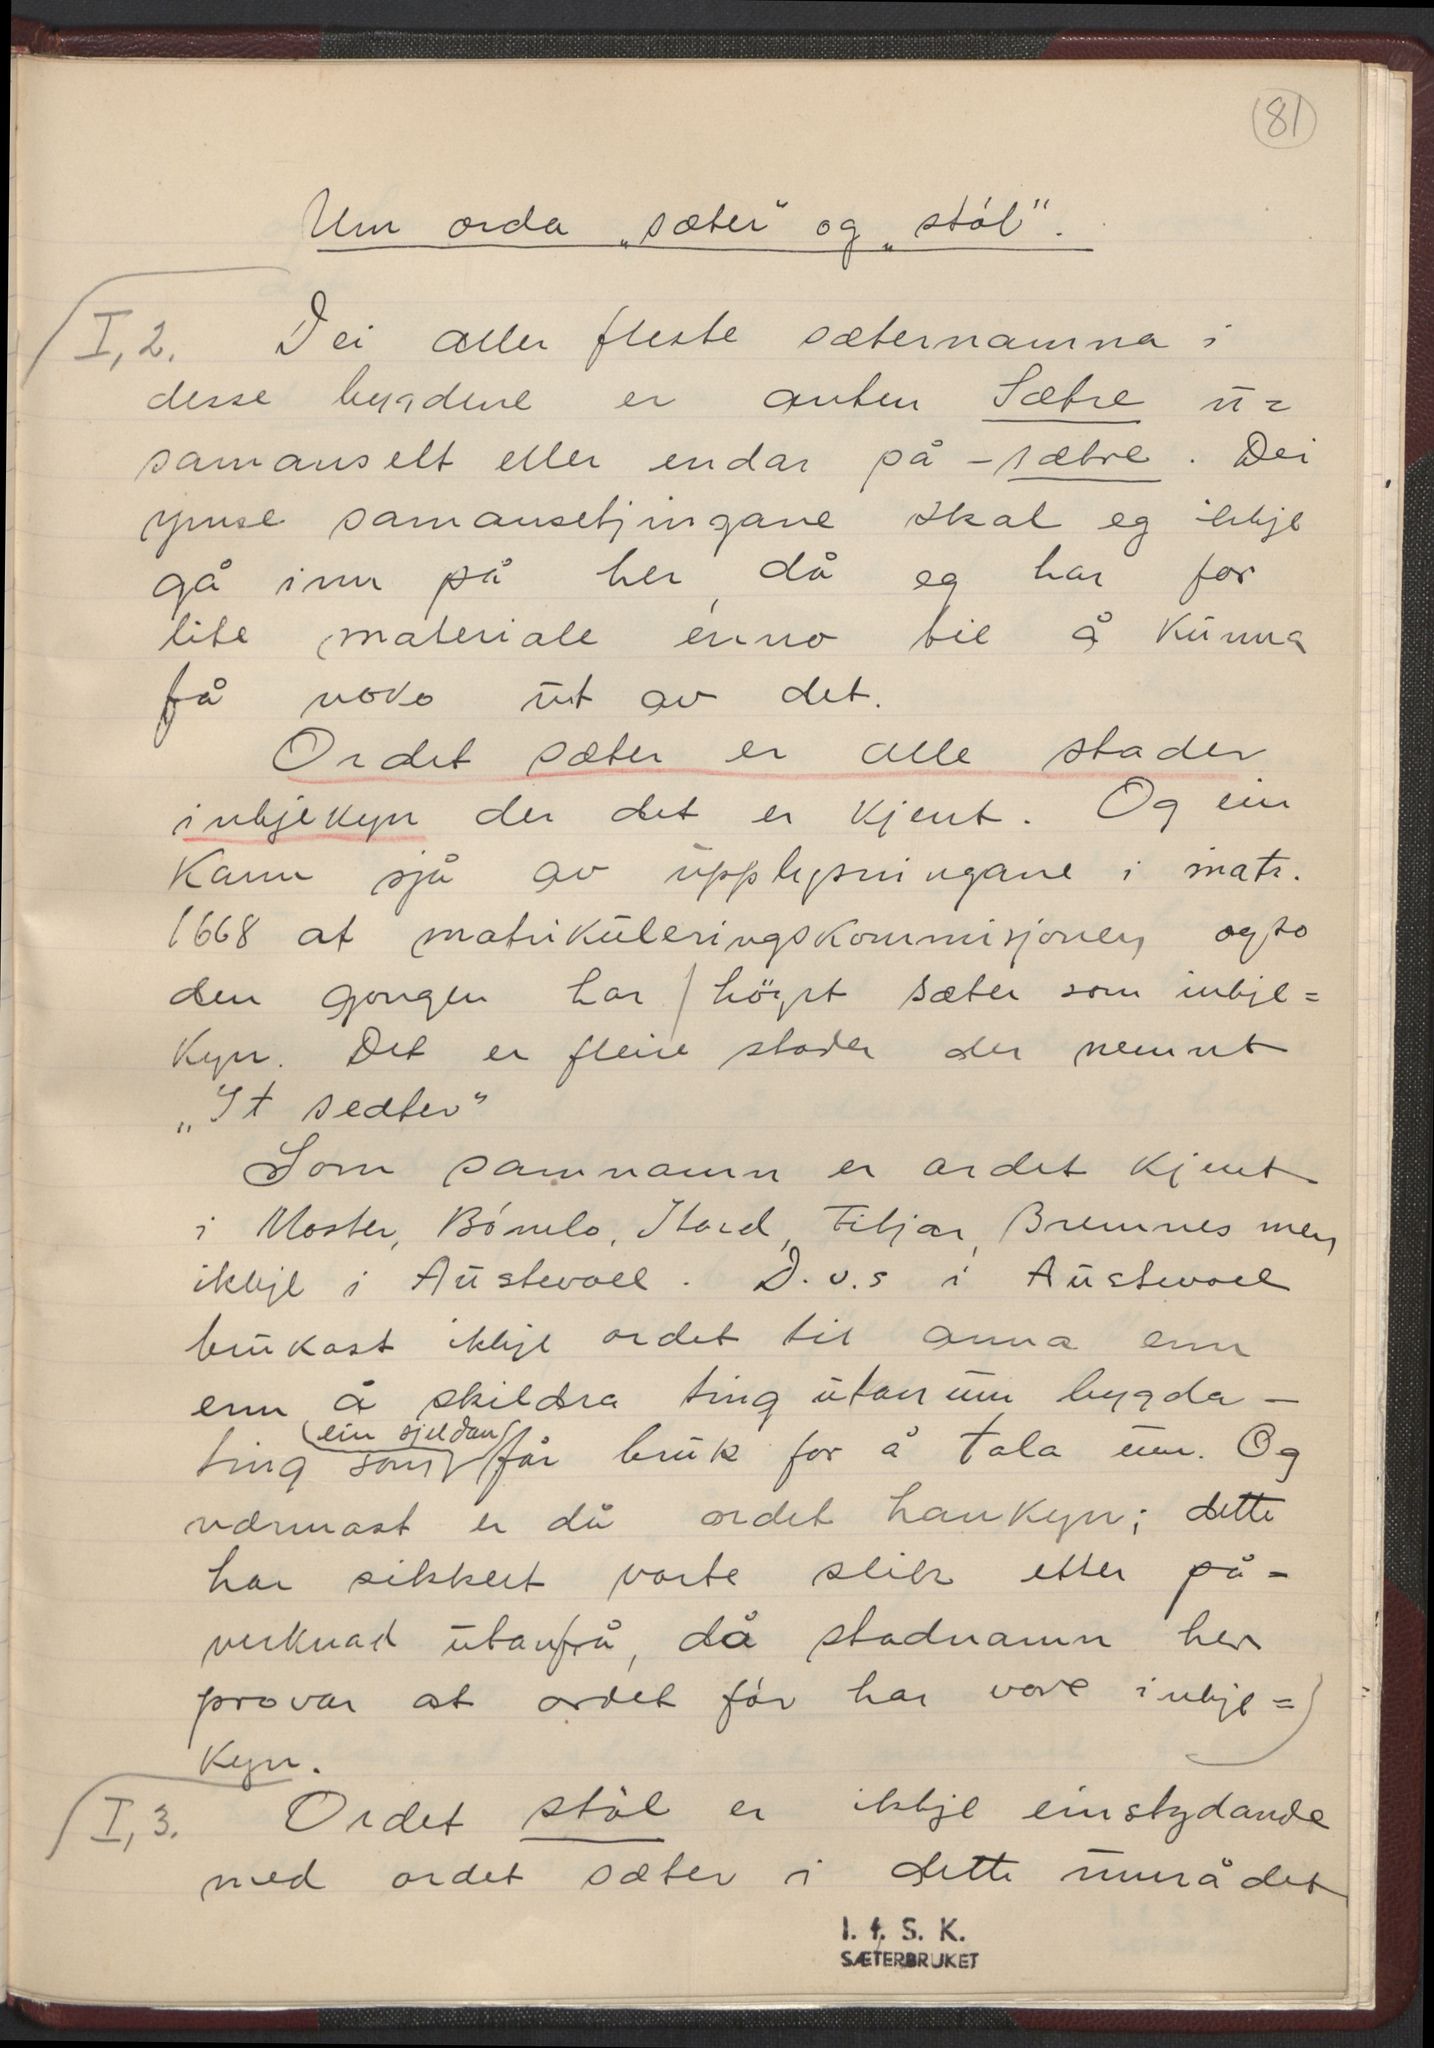 81
Um orda „sæter" og „støl".
I, 2. Dei aller fleste sæternamna i
desse bygdene er anten Sætre u=
samanselt eller endar på -sætre. Dei
ymse samansetjingane skal eg ikkje
gå inn på her, då eg har for
lite materiale enno til å kunna
få noko ut av det.
Ordet sæter er alle stader
inkjekyn der det er kjent. Og ein
kann sjå av upplysningane i matr.
1668 at matrikuleringskommisjonen ogso
den gongen har høyrt sæter som inkje=
kyn. Det er fleire stader der nemnt
„It sedter"
Som samnamn er ordet kjent
i Moster, Bømlo, Stord, Fitjar, Bremnes men
ikkje i Austevoll. D.v.s i Austevoll
brukast ikkje ordet til anna enn
enn å skildra ting utanum bygda -
ting som ein sjeldan får bruk for å tala um. Og
nærmast er då ordet hankyn; dette
har sikkert vorte slik etter på-
verknad utanfrå, då stadnamn her
provar at ordet før har vore inkje=
kyn.
I, 3. Ordet støl er ikkje einstydande
med ordet sæter i dette umrådet
I. f. S. K.
SÆTERBRUKET